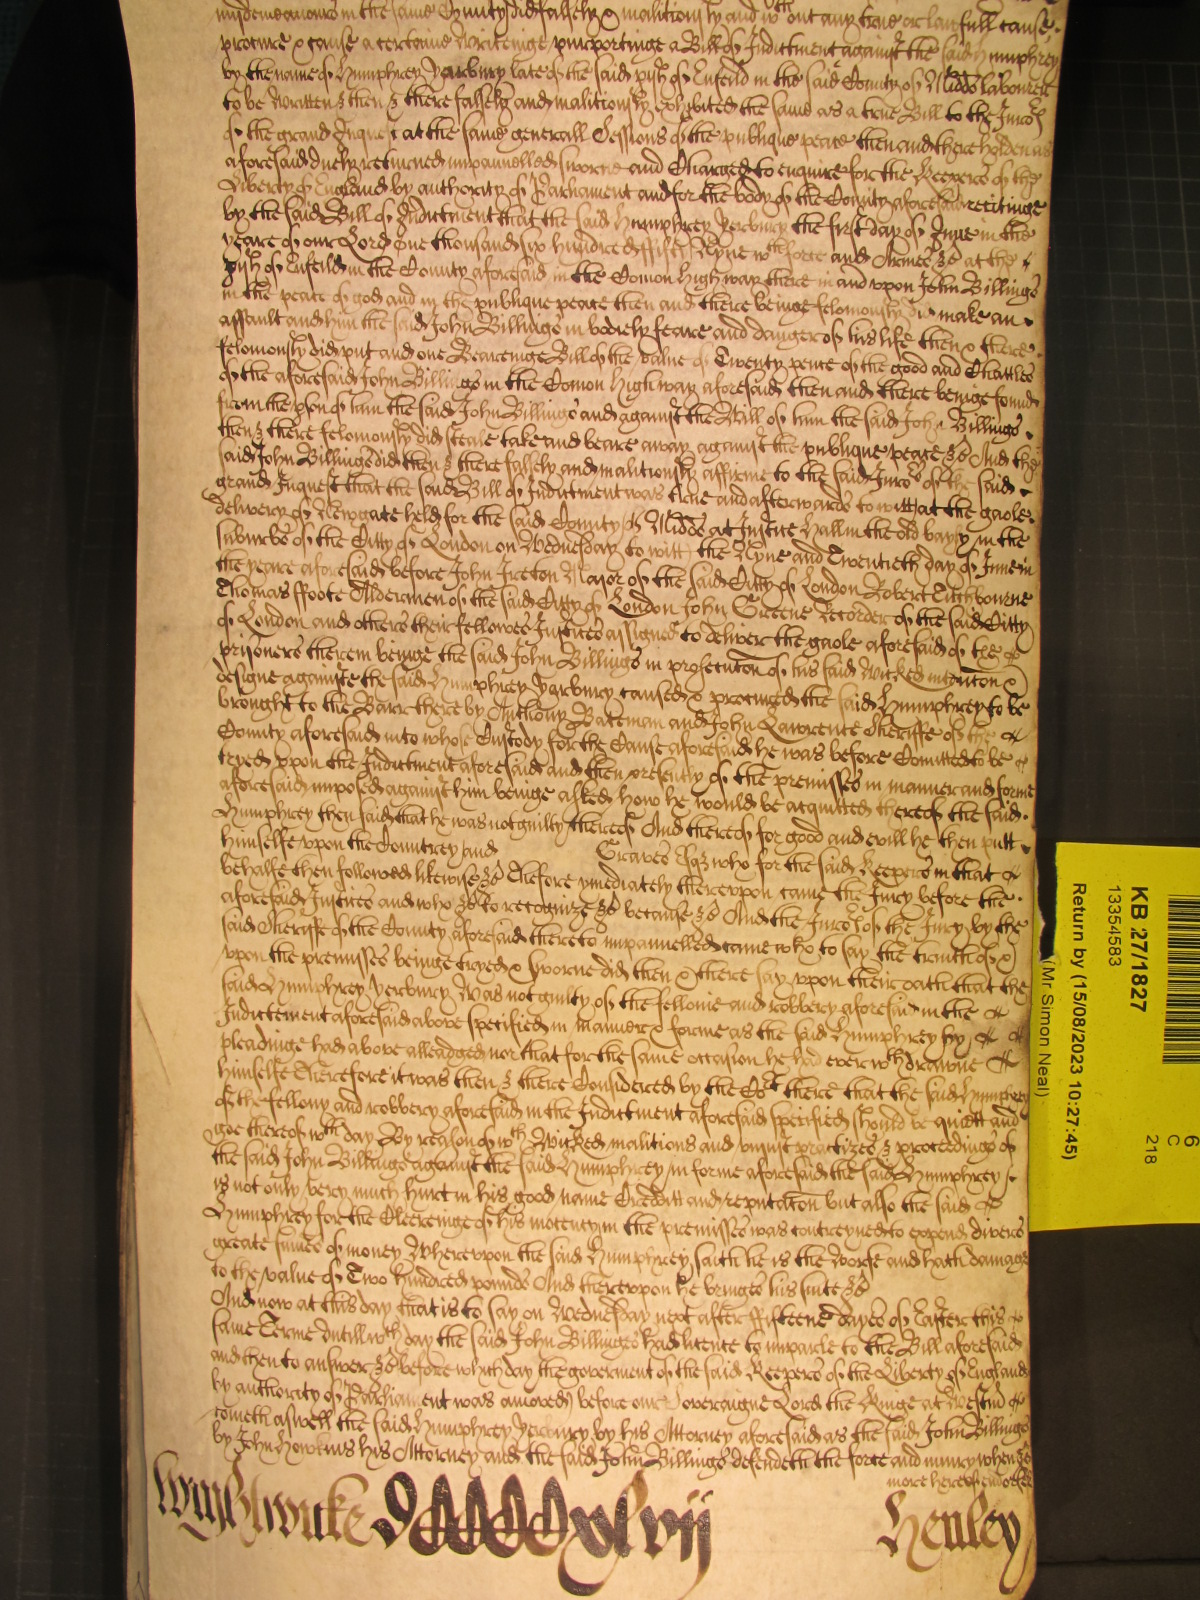 misdemeanoures in the same County did falsely & malitiously and wthout any true or lawfull cause
procure & cause a certaine Writeinge purportinge a Bill of Indictment against the said Humphrey
by the name of Humphrey Yarbury late of the said pish of Enfeild in the said County of Midds labourer
to be Written & then & there falsely and malitiously exhibited the same as a true Bill to the Juro's
of the grand Inquest at the same generall Sessions of the publique peace then and there holden as
aforesaid duely returned impannelled sworne and Charged to enquire for the Keepers of the
Liberty of England by authority of Parliament and for the body of the County aforesaid recitinge
by the said Bill of Indictment that the said Humphrey Yerbury the first day of June in the
yeare of our Lord One thousand six hundred fiftie Nyne wth force and Armes &c at the
pish of Enfeild in the County aforesaid in the Comon high way there in and upon John Billings
in the peace of god and in the publique peace then and there beinge felomously did make an
assault and him the said John Billings in bodiely feare and danger of his life then & there
felomously did put and one Beareinge Bill of the value of Twenty pence of the good and Chattles
of the aforesaid John Billings in the Comon high way aforesaid then and there beinge found
from the pson of him the said John Billings and against the Will of him the said John Billings
then & there felomously did steale take and beare away against the publique peace &c And the
said John Billings did then & there falsely and malitiously affirme to the said Juro's of the said
grand Inquest that the said Bill of Indictment was true and afterwards to witt at the gaole
delivery of Newgate held for the said County of Midds at Justice Hall in the old bayly in the
suburbes of the Citty of London on Wednesday to witt the Nyne and Twentieth day of June in
the yeare aforesaid before John Ireton Major of the said Citty of London Robert Titchbourne
Thomas ffoote Aldermen of the said Citty of London John Greene Recorder of the said Citty
of London and others their fellowes Justices assigned to deliver the gaole aforesaid of the
prisoners therein beinge the said John Billings in prosecution of his said Wicked intention &
designe againste the said Humphrey Yarbury caused & procured the said Humphrey to be
brought to the Barre there by Anthony Bateman and John Lawrence Sheriffe of the
County aforesaid into whose Custody for the Cause aforesaid he was before Comitted to be
tryed upon the Indictment aforesaid and then presently of the premisses in manner and forme
aforesaid imposed against him beinge asked how he would be acquitted thereof the said
Humphrey then said that he was not guilty thereof And thereof for good and evill he then putt
himselfe upon the Countrey and Graves Esqr who for the said Keepers in that
behalfe then followed likewise &c Therefore ymediately thereupon came the Jury before the
aforesaid Justices and who &c to recognize &c because &c And the Juro's of the Jury by the
said Sheriffe of the County aforesaid thereto impannelled came who to say the truth of &
upon the premisses beinge tryed & sworne did then & there say upon their oath that the
said Humphrey Yerbury Was not guilty of the fellonie and robbery aforesaid in the
Indictement aforesaid above specified in manner & forme as the said Humphrey by
pleadinge had above alleadged nor that for the same occasion he had ever wthdrawne
himselfe Therefore it was then & there Considered by the Cort there that the said Humphrey
of the fellony and robbery aforesaid in the Indictment aforesaid specified should be quiett and
goe thereof wth day By reason of wch Wicked malitious and uniust practizes & proceedings of
the said John Billings against the said Humphrey in forme aforesaid the said Humphrey
is not only very much hurt in his good name Creditt and reputacon but also the said
Humphrey for the Cleereinge of his inocency in the premisses was constreyned to expend divers
greate summes of money Whereupon the said Humphrey saith he is the Worse and hath damage
to the value of Two hundred pounds And thereupon he bringes his suite &c
And now at this day that is to say on Wednesday next after ffifteene dayes of Easter this
same Terme Untill wch day the said John Billings had licence to imparle to the Bill aforesaid
and then to answer &c before which day the goverment of the said Keepers of the Liberty of England
by authority of Parliament was amoved before our Soveraigne Lord the Kinge at Westmr
cometh aswell the said Humphrey Yerbury by his Attorney aforesaid as the said John Billings
by John Hawkins his Attorney and the said John Billings defendeth the force and iniury when &c
more hereof endorsed
Wynslwicke Henley
KB 27/1827
13354583
Return by (15/08/2023 10:27:45)
(Mr Simon Neal)
6
C
218